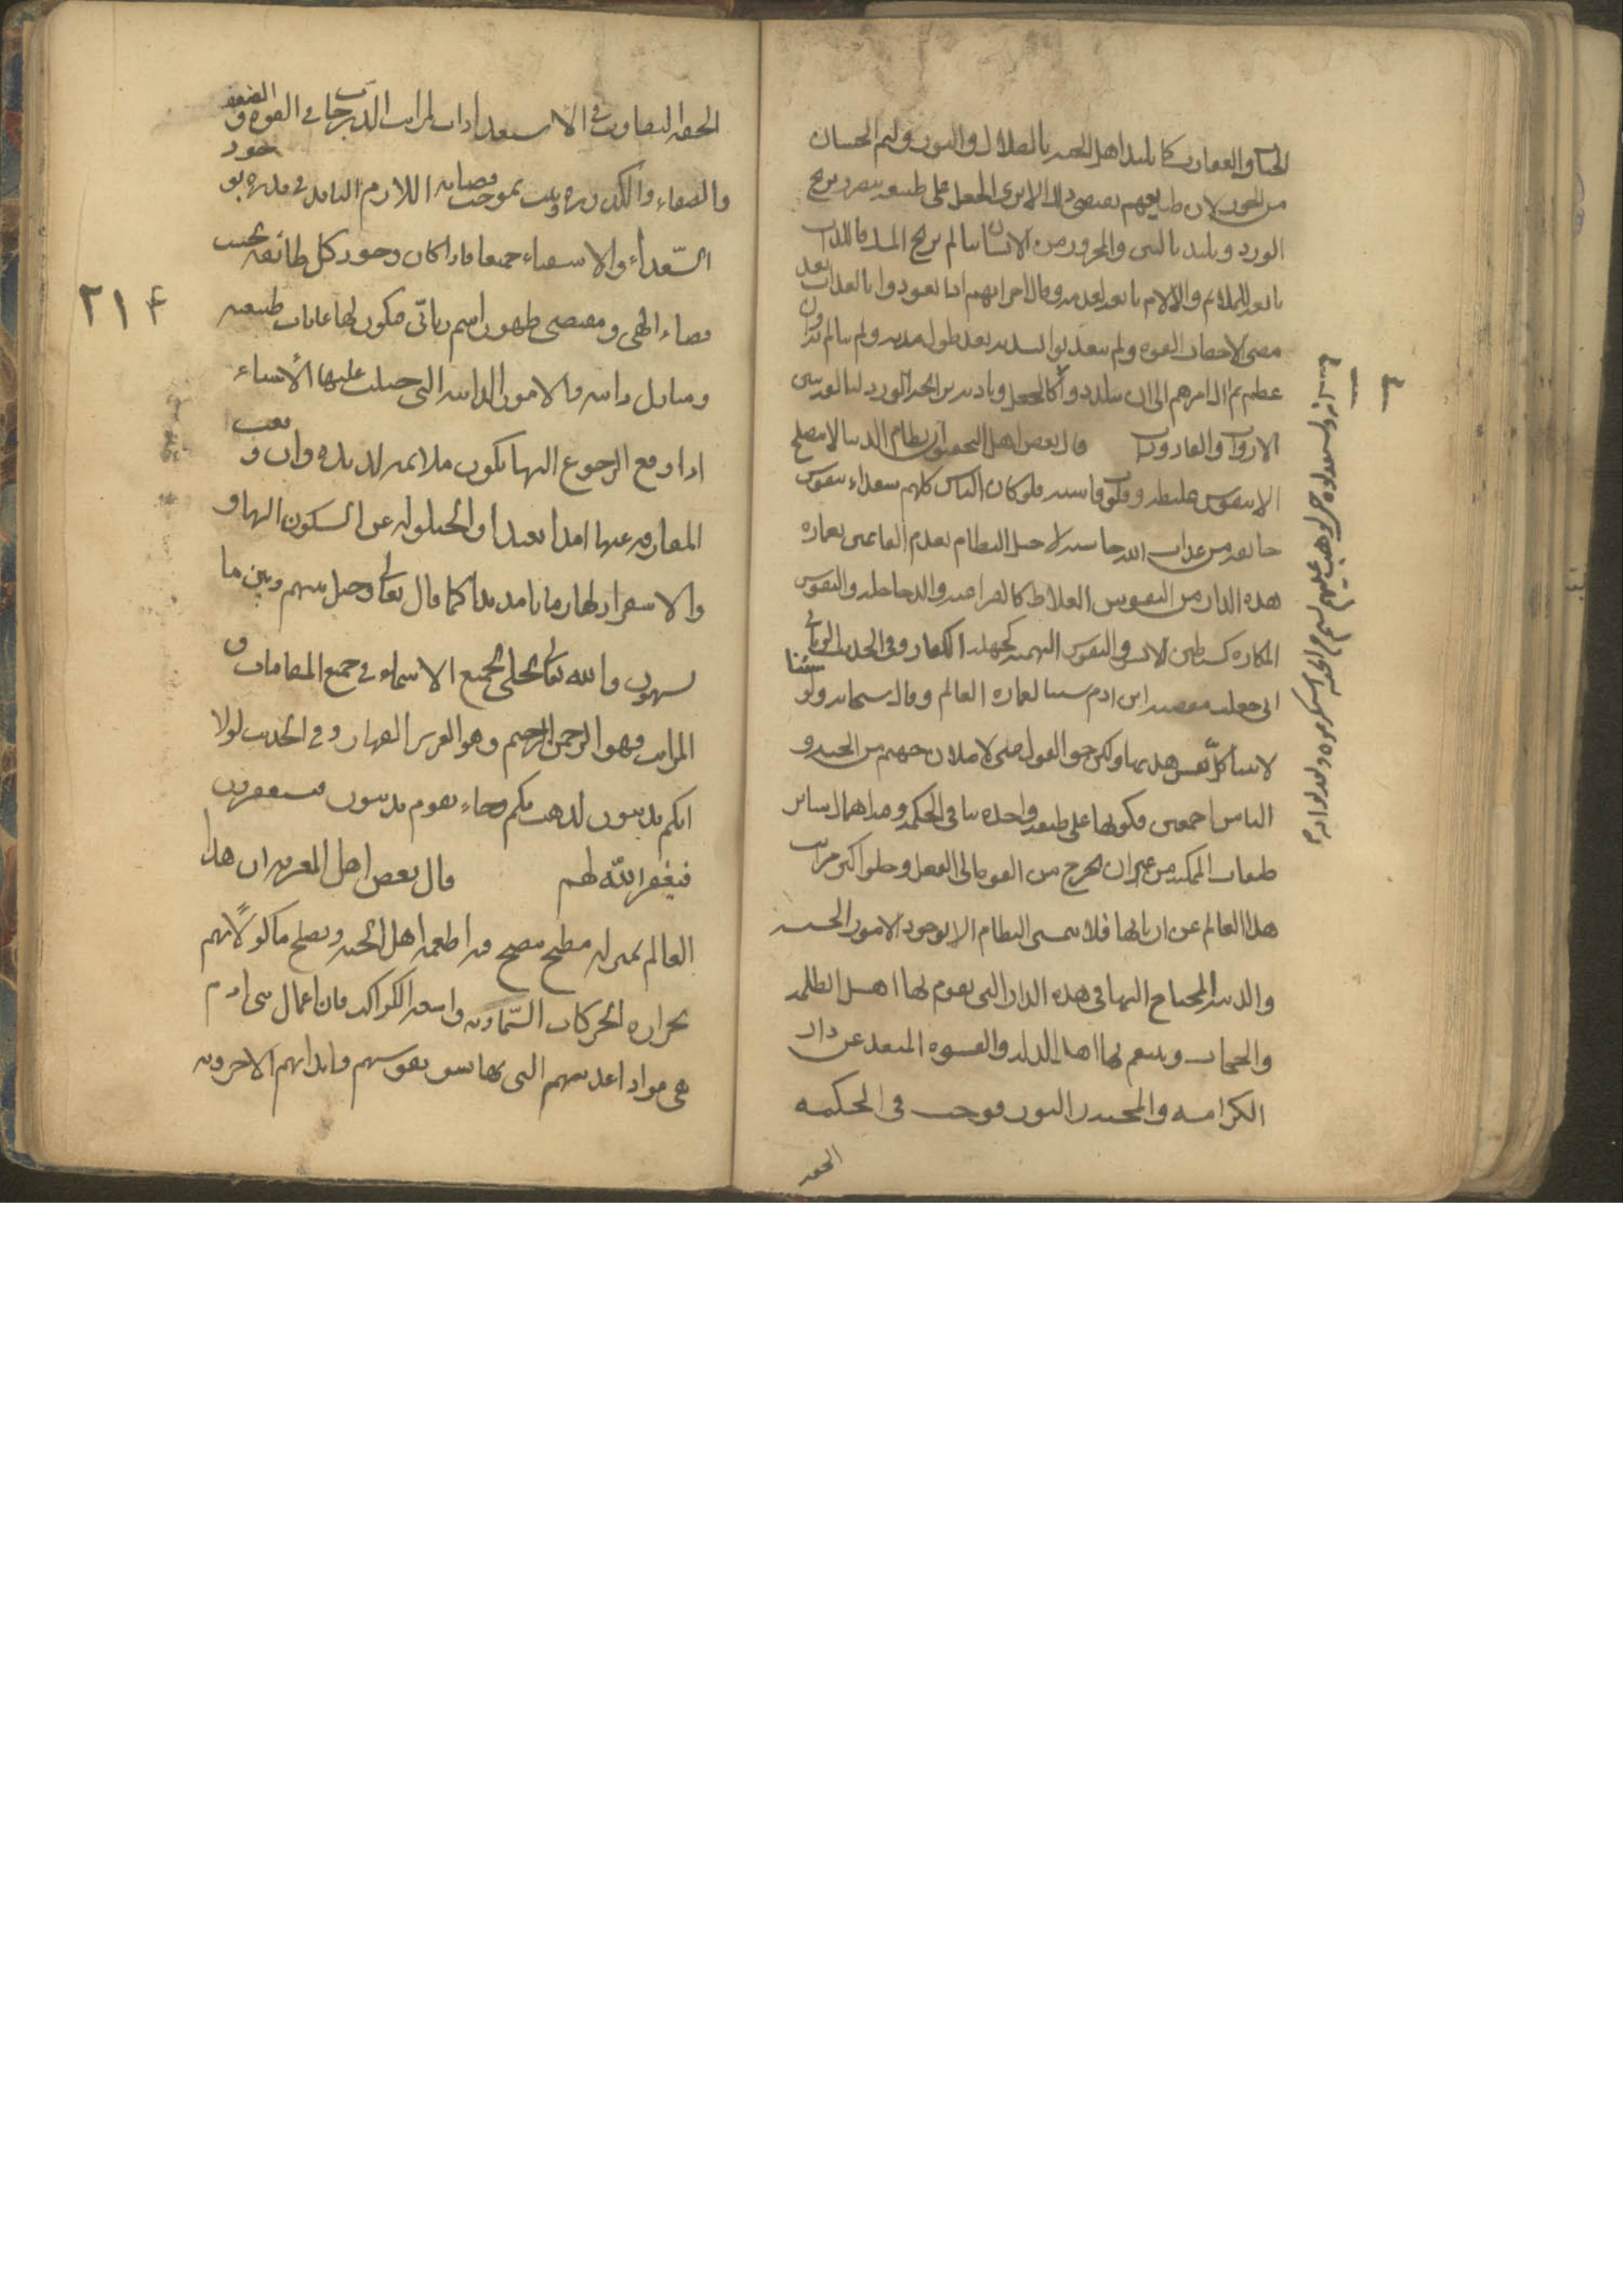 الحيات والعقارب كما يلتذ اهل الجنة بالظلال والنور ولثم الحسان
من الحور لان طبايعهم يقتضي ذلك الا ترى الجعل على طبيعة يتضرر بريح
الورد ويلتذ بالنتن والمحرور من الانسان يتألم بريح المسك فاللذات
تابعة للملائم والآلام تابعة لعدمه وقال اخرانهم اذا تعودوا بالعذاب بعد
مضي الاحقاب الفوه ولم يتعذبوا بشدته بعد طول مدته ولم يتألموا به وان
عظم ثم آل امرهم الى ان يتلذذوا كالجعل وتأذيه برائحة الورد لتألفه بنتن
الارواث والقاذورات قال بعض اهل التحقيق ان نظام الدنيا لا ينصلح
الا بنفوس غليظة وقلوب قاسية فلو كان الناس كلهم سعداء بنفوس
خائفة من عذاب الله خاشية لاختل النظام بعدم القائمين بعمارة
هذه الدار من النفوس الغلاظ كالفراعنة والدجاجلة والنفوس
المكارة كشياطين الانس والنفوس البهيمية كجهلة الكفار وفي الحديث الرباني
اني جعلت معصية ابن ادم سببا لعمارة العالم وقال سبحانه ولو شئنا
لآتينا كل نفس هديها ولكن حق القول مني لاملان جهنم من الجنة و
الناس اجمعين فكونها على طبقة واحدة ينافي الحكمة وهو اهمال سائر
طبقات الممكنة من غير ان يخرج من القوة الى الفعل وخلو اكثر مراتب
هذا العالم عن اربابها فلا يتمشى النظام الا بوجود الامور الخسيسة
والدنية المحتاج اليها في هذه الدار التي يقوم لها اهل الظلمة
والحجاب ويتنعم لها اهل الذلة والقسوة المبعد عن دار
الكرامة والمحبة والنور فوجب في الحكمة
الحقة
الحقة التفاوت في الاستعدادات لمراتب الدرجات في القوة والضعف
والصفاء والكدورة وثبت بموجب قضائه اللازم النافذ في قدره بوجود
السعداء والاشقياء جميعا فاذا كان وجود كل طائفة بحسب
قضاء الهي ومقتضى ظهور اسم رباني فيكون لها غايات طبيعية
ومنازل ذاتية والامور الذاتية التي جبلت عليها الاشياء
اذا وقع الرجوع اليها تكون ملائمة لذيذة وان وقعت
المفارقة عنها امدا بعيدا والحيلولة عن السكون اليها و
الاستقرار لها زمانا مديدا كما قال تعالى وحيل بينهم وبين ما
يشتهون والله تعالى تجلى بجميع الاسماء في جميع المقامات و
المراتب فهو الرحمن الرحيم وهو العزيز القهار وفي الحديث لولا
انكم تذنبون لذهب بكم وجاء بقوم يذنبون فيستغفرون
فيغفر الله لهم قال بعض اهل المعرفة ان هذا
العالم بمنزلة مطبخ ينضج فيه اطعمة اهل الجنة ويصلح مأكولاتهم
بحرارة الحركات السماوية واشعة الكواكب فان اعمال بني ادم
هي مواد اغذيتهم التي بها نشو نفوسهم وابدانهم الاخروية
٢١٤